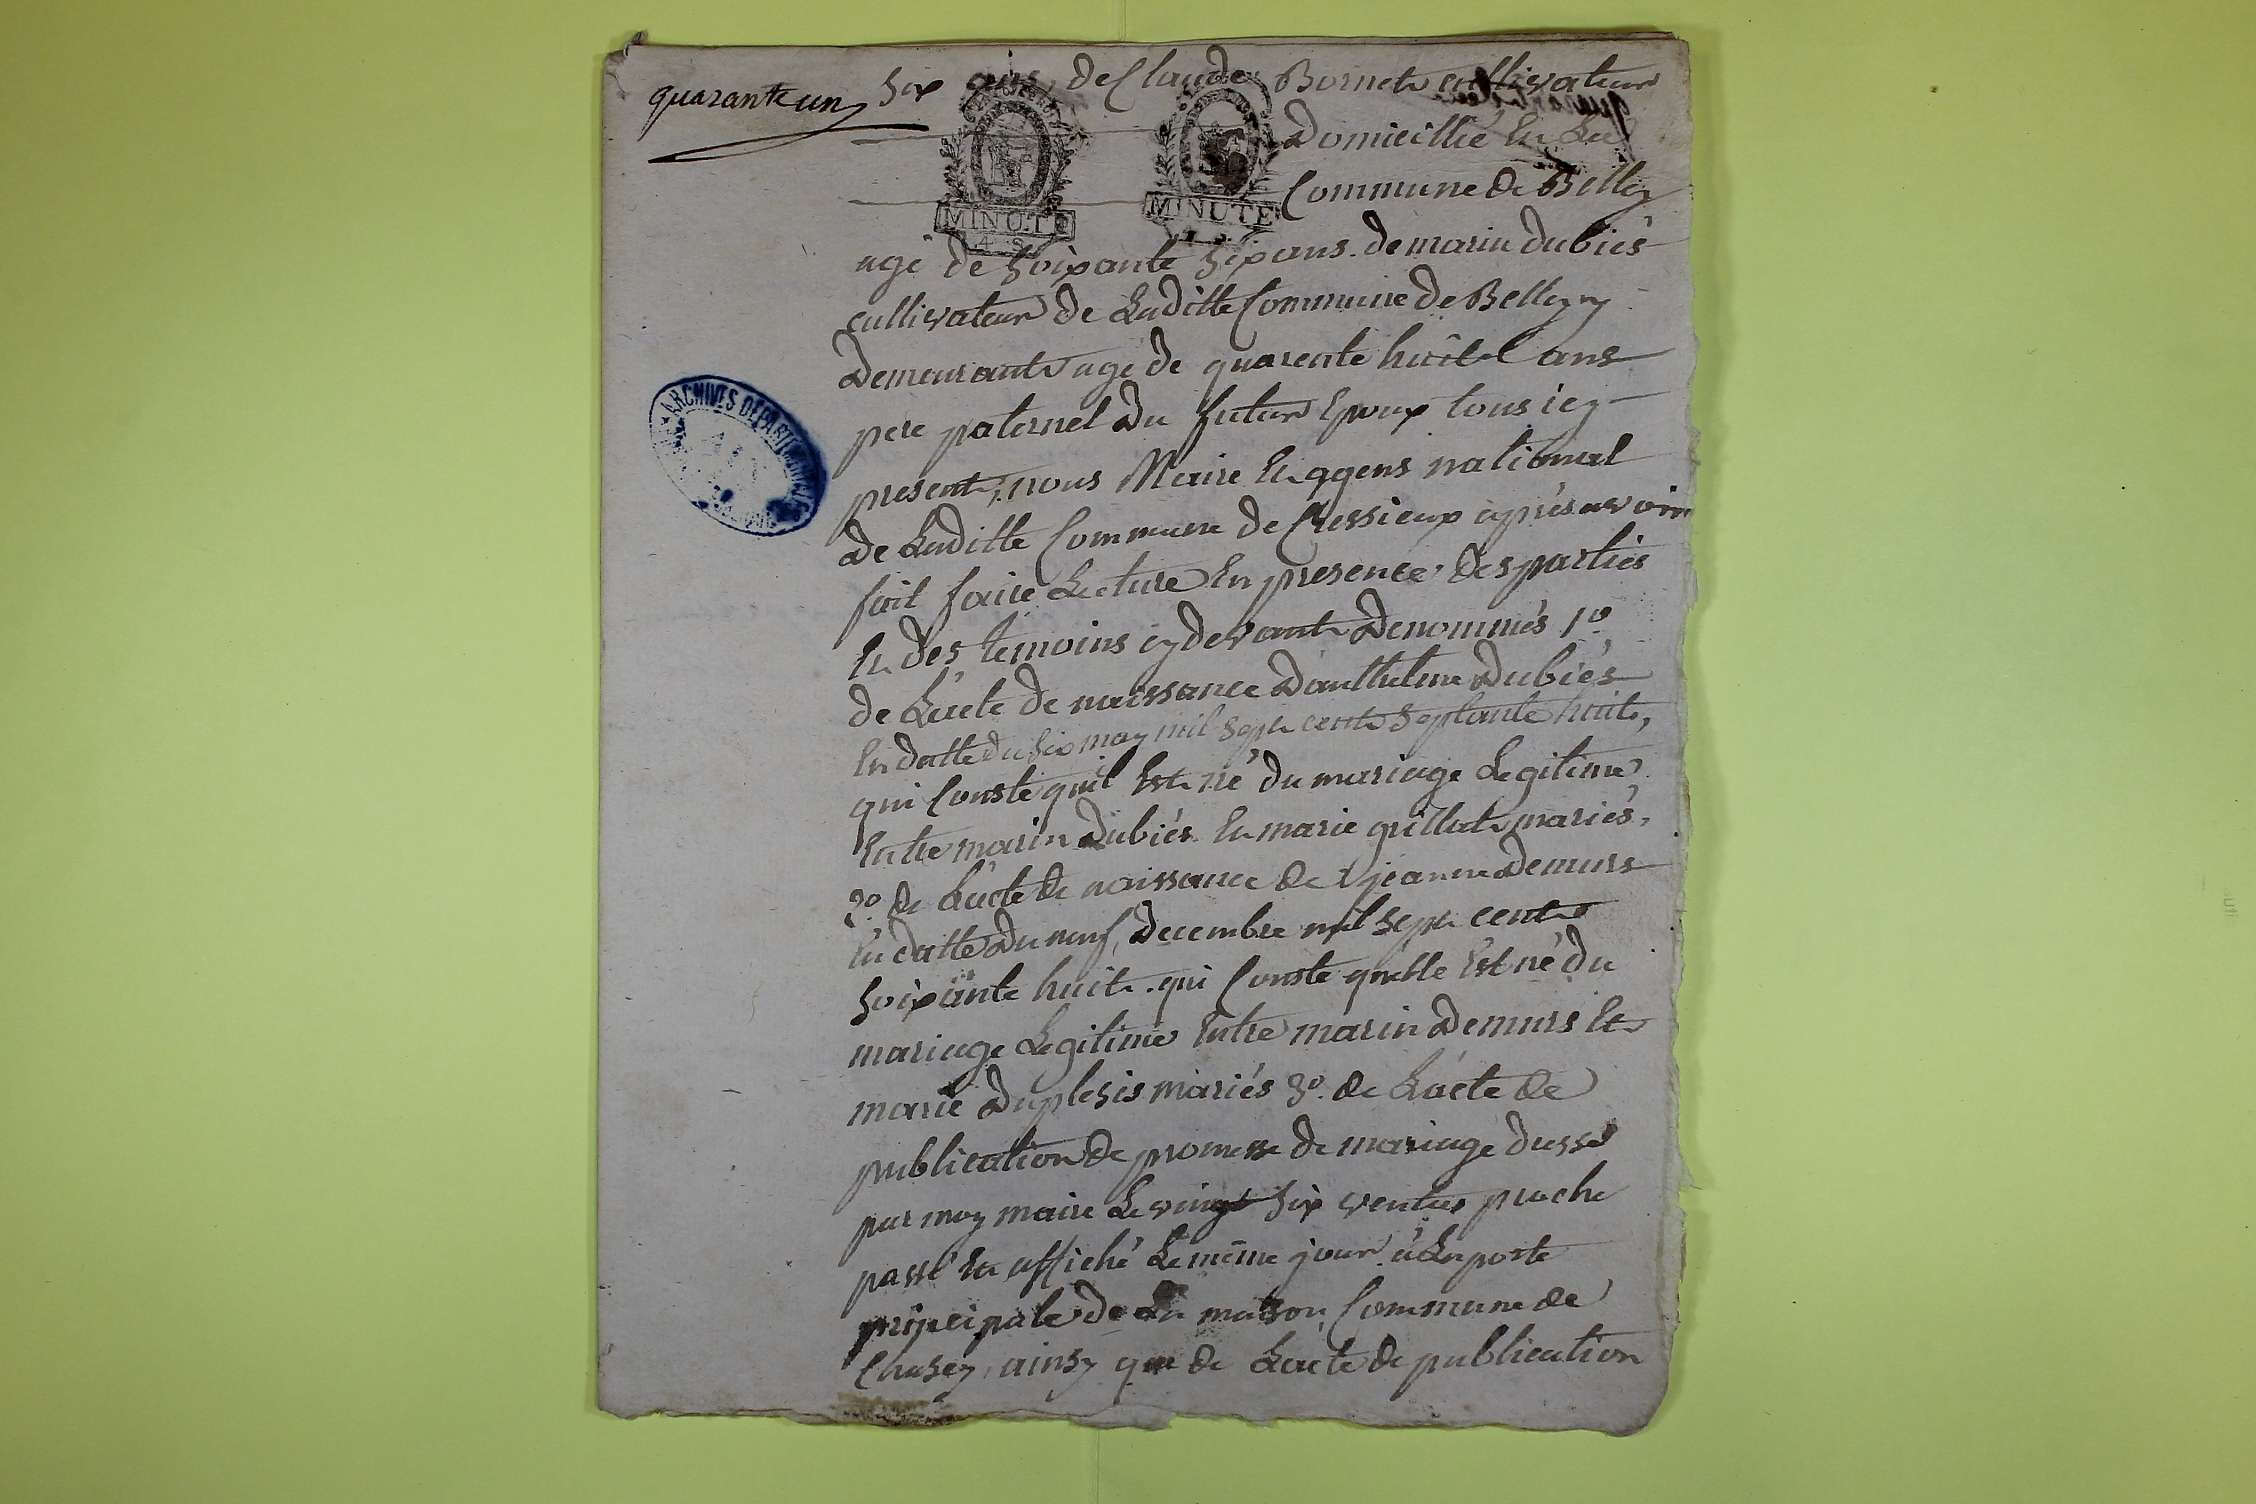 quarante un
six ans, de Claude Bornet cultivateur
Domicillié En La
Commune de Belley
MINUTE
4 S
MINUTE
agé de soixante six ans. de marin dubiés
cultivateur de Laditte Commune de Belley y
Demeurant agé de quarente huit ans
pere paternel du futur Epoux tous icy
present, nous Maire Et agens national
de Laditte Commune de Cressieux après avoir
fait faire Lecture En presence des parties
Et des temoins cy devant Denommés 1o
de L'acte de naissance D'anthelme Dubiés
En datte du six may mil sept cent septante huit,
qui Conste quil Est né du mariage Legitime
Entre marin Dubiés Et marie grillat mariés,
2o de L'acte de naissance de jeanne Demurs
En datte du neuf Decembre mil sept cent
soixante huit. qui Conste quelle Est né du
mariage Legitime Entre marin Demurs Et
marie Duplesis mariés 3o. de L'acte de
publication de promesse de mariage dressé
par moy maire Le vingt six ventus proche
passé Et affiché Le même jour à La porte
principale de La maison Commune de
Chasey, ainsy que de L'acte de publication
ARCHIVES DEPARTEMENTALES